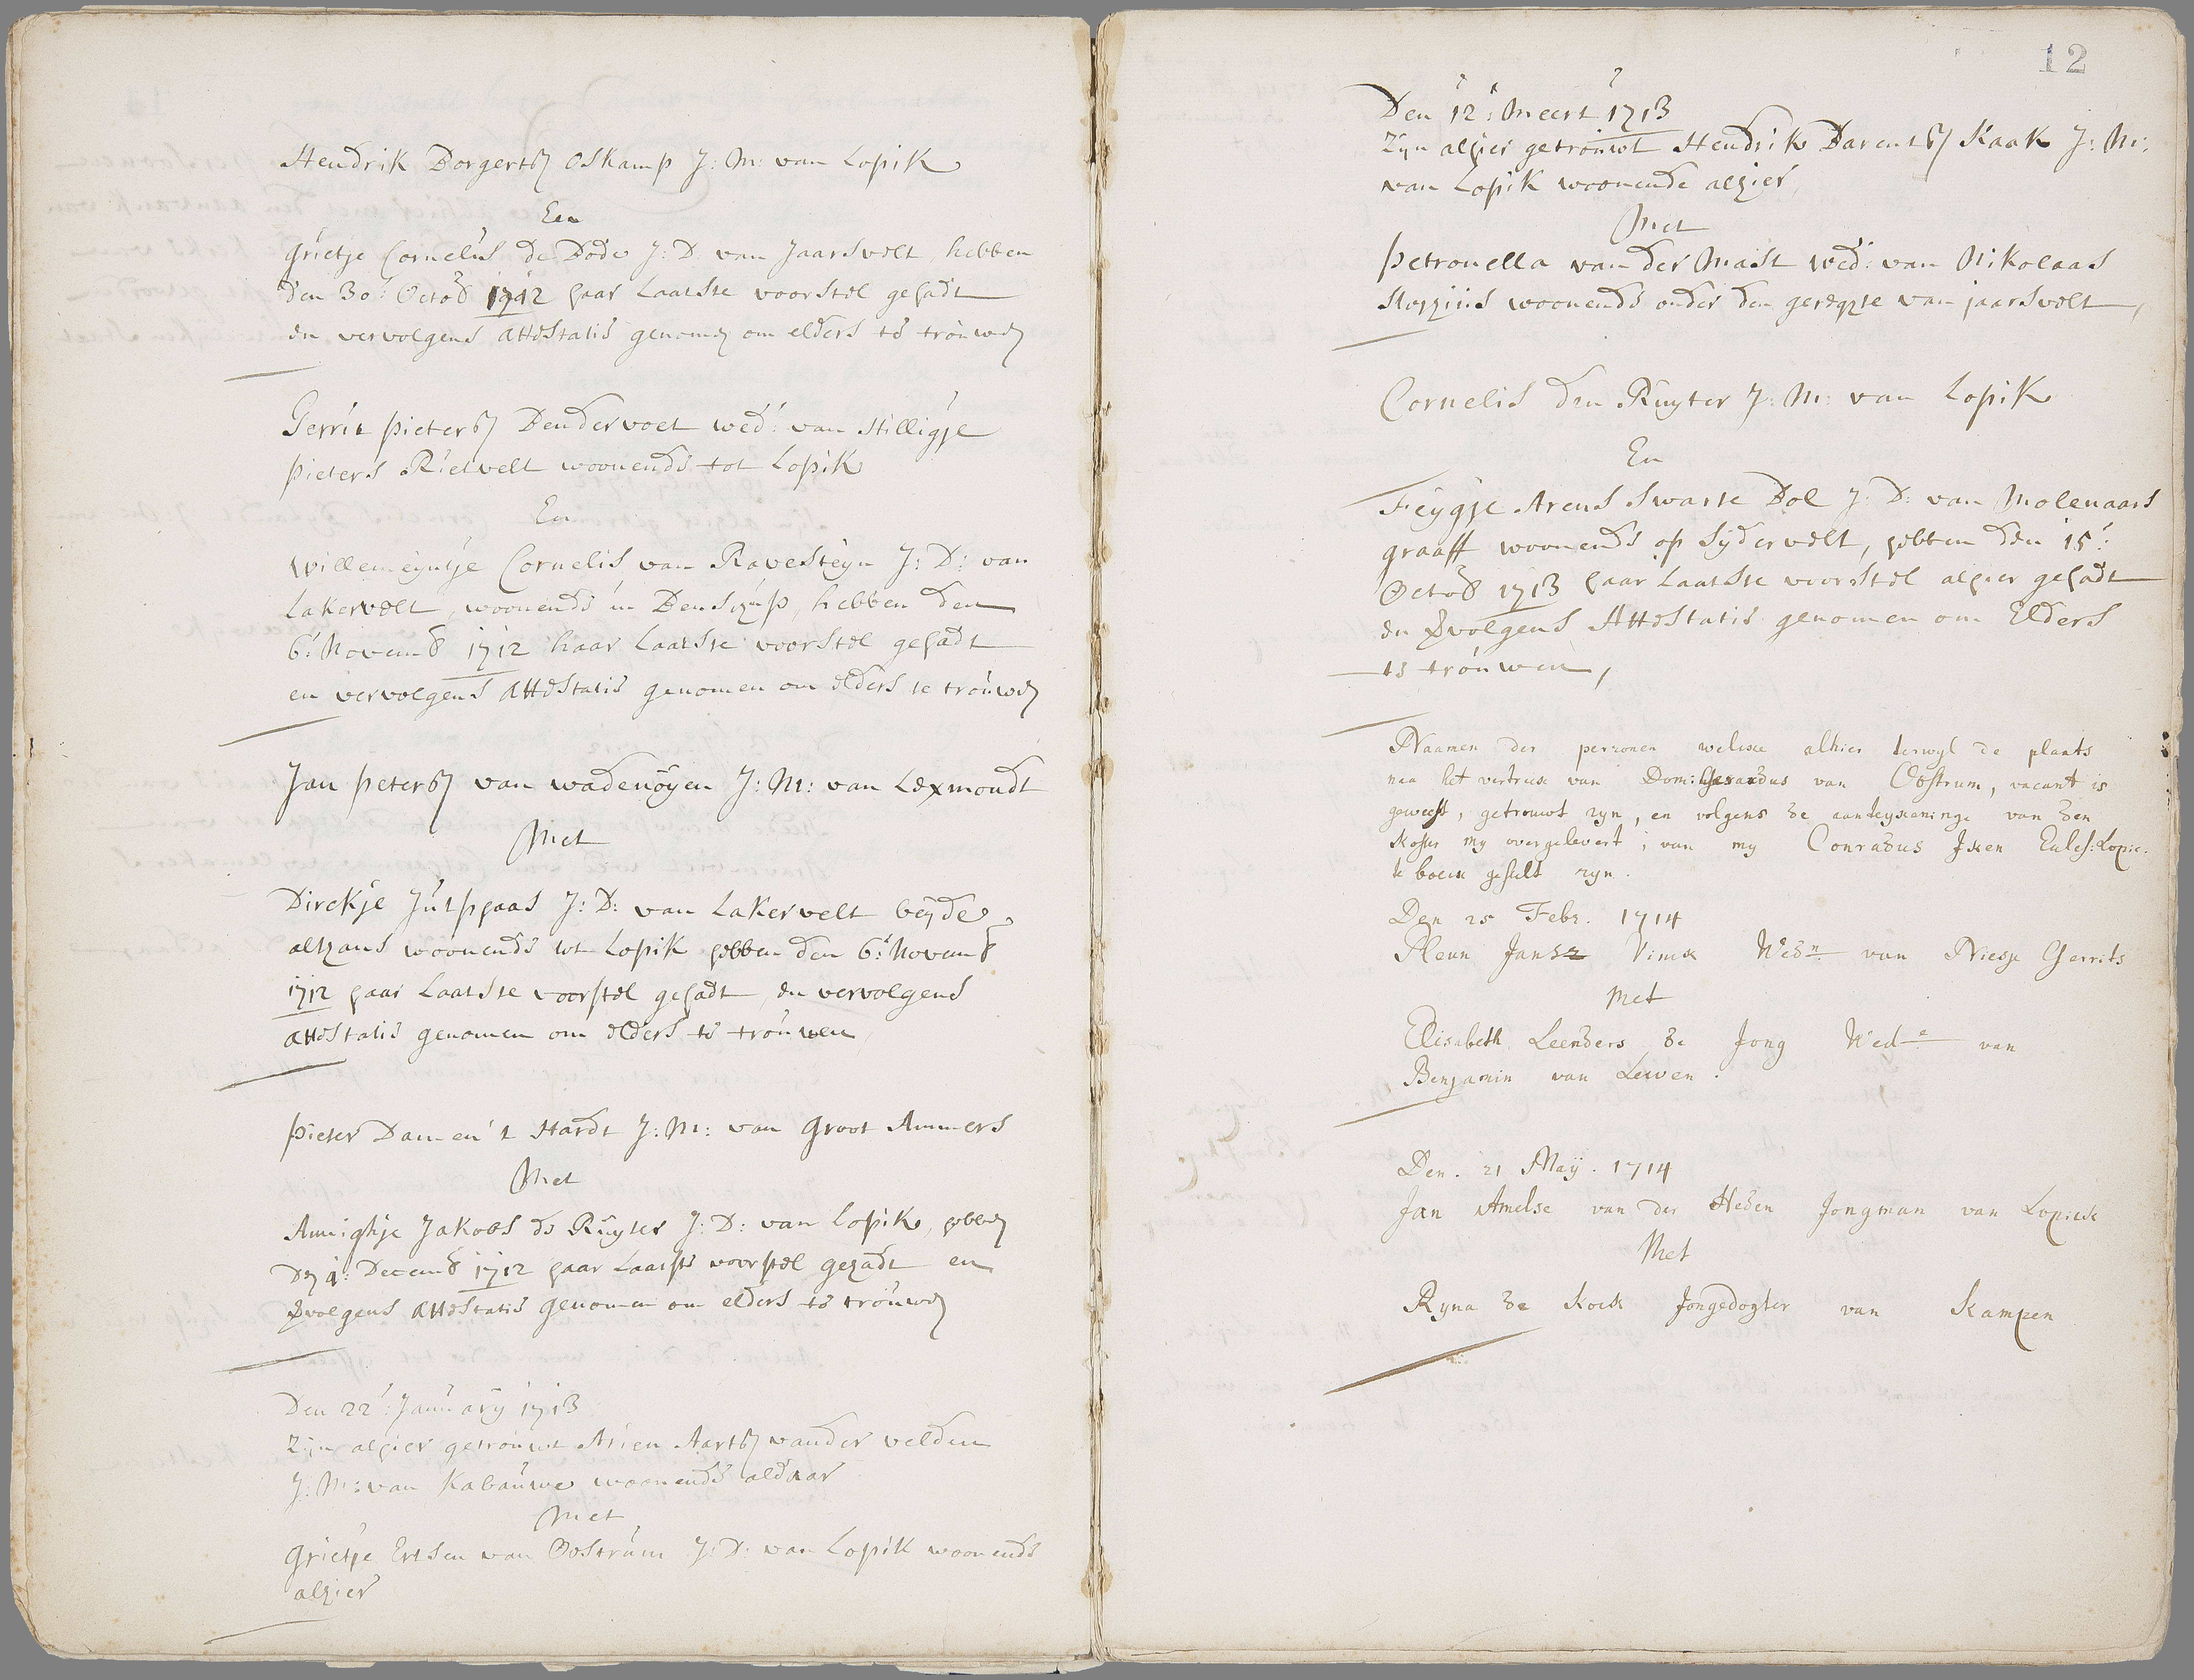 Hendrik Borgertsz Oskamp J: M: van Lopik
En
Grietje Cornelis de Bode J: D. van Jaarsvelt, hebben
den 30: Octob 1712 haar Laatste voorstel gehadt
en vervolgens attestatie genomen om elders te trouwen
Gerrit Pietersz Dendervoet wed: van Hilligje
Pieters Rietvelt woonende tot Lopik
En
Willemeyntje Cornelis van Ravesteyn J: D: van
Lakervelt, woonende in, hebben den
6: Novemb 1712 haar Laatste voorstel gehadt
en vervolgens attestatie genomen om elders te trouwen
Jan Petersz van Wadenoyen J: M: van Lexmondt
Met
Dirckje J: D: van Lakervelt beyde
althans woonende tot Lopik hebben den 6: Novemb
1712 haar Laatste voorstel gehadt, en vervolgens
attestatie genomen om elders te trouwen
Pieter Damen 't Hardt J: M: van Groot Ammers
Met
Annighje Jakobs de Ruyter J: D: van Lopik, hebben
den 4: Decemb 1712 haar Laatste voorstel gehadt en
vvolgens attestatie genomen om elders te trouwen
Den 22: January 1713
Zijn alhier getrouwt Arien Aartsz vander velden
J: M: van Kabauwe woonende aldaar
Met
Grietje Ertsen van Oostrum J: D: van Lopik woonende
alhier
12
Den 12: Meert 1713
Zijn alhier getrouwt Hendrik Barentsz Kaak J: M:
van Lopik woonende alhier,
Met
Petronella van der Mast wed: van Nikolaas
woonende onder den gerechte van jaarsvelt,
Cornelis den Ruyter J: M: van Lopik
En
Feygje Arens Swarte Bol J: D: van Molenaars
graaff woonende op Sydervelt, hebben den 15:
Octob 1713 haar Laatste voorstel alhier gehadt
en vvolgens Attestatie genomen om Elders
te trouwen,
Naamen der perzonen welcke alhier terwyl de plaats
naa het vertreck van Dom: Gerardus van Oostrum, vacant is
geweest, getrouwt zyn, en volgens de aanteyckeninge van den
koster my overgelevert, van my Conradus Iken Eccles: Lopic:
te boeck gestelt zyn.
Den 25 Febr. 1714
Pleun Jansz Vinck Wedn van Niesje Gerrits
Met
Elisabeth Leenders de Jong Wede van
Benjamin van Lewen.
Den. 21 May. 1714
Jan Amelse van der Heden Jongman van Lopick
Met
Ryna de Kock Jongedogter van Kampen